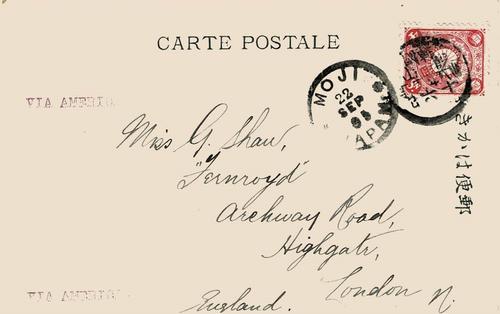 CARTE POSTALE
VIA AMERIC
MOJI
22
SEP
JAPAN
きかは便郵
Miss G. Shaw,
"Fernroyd"
Archway Road,
Highgate,
London N.
England.
VIA AMERIC